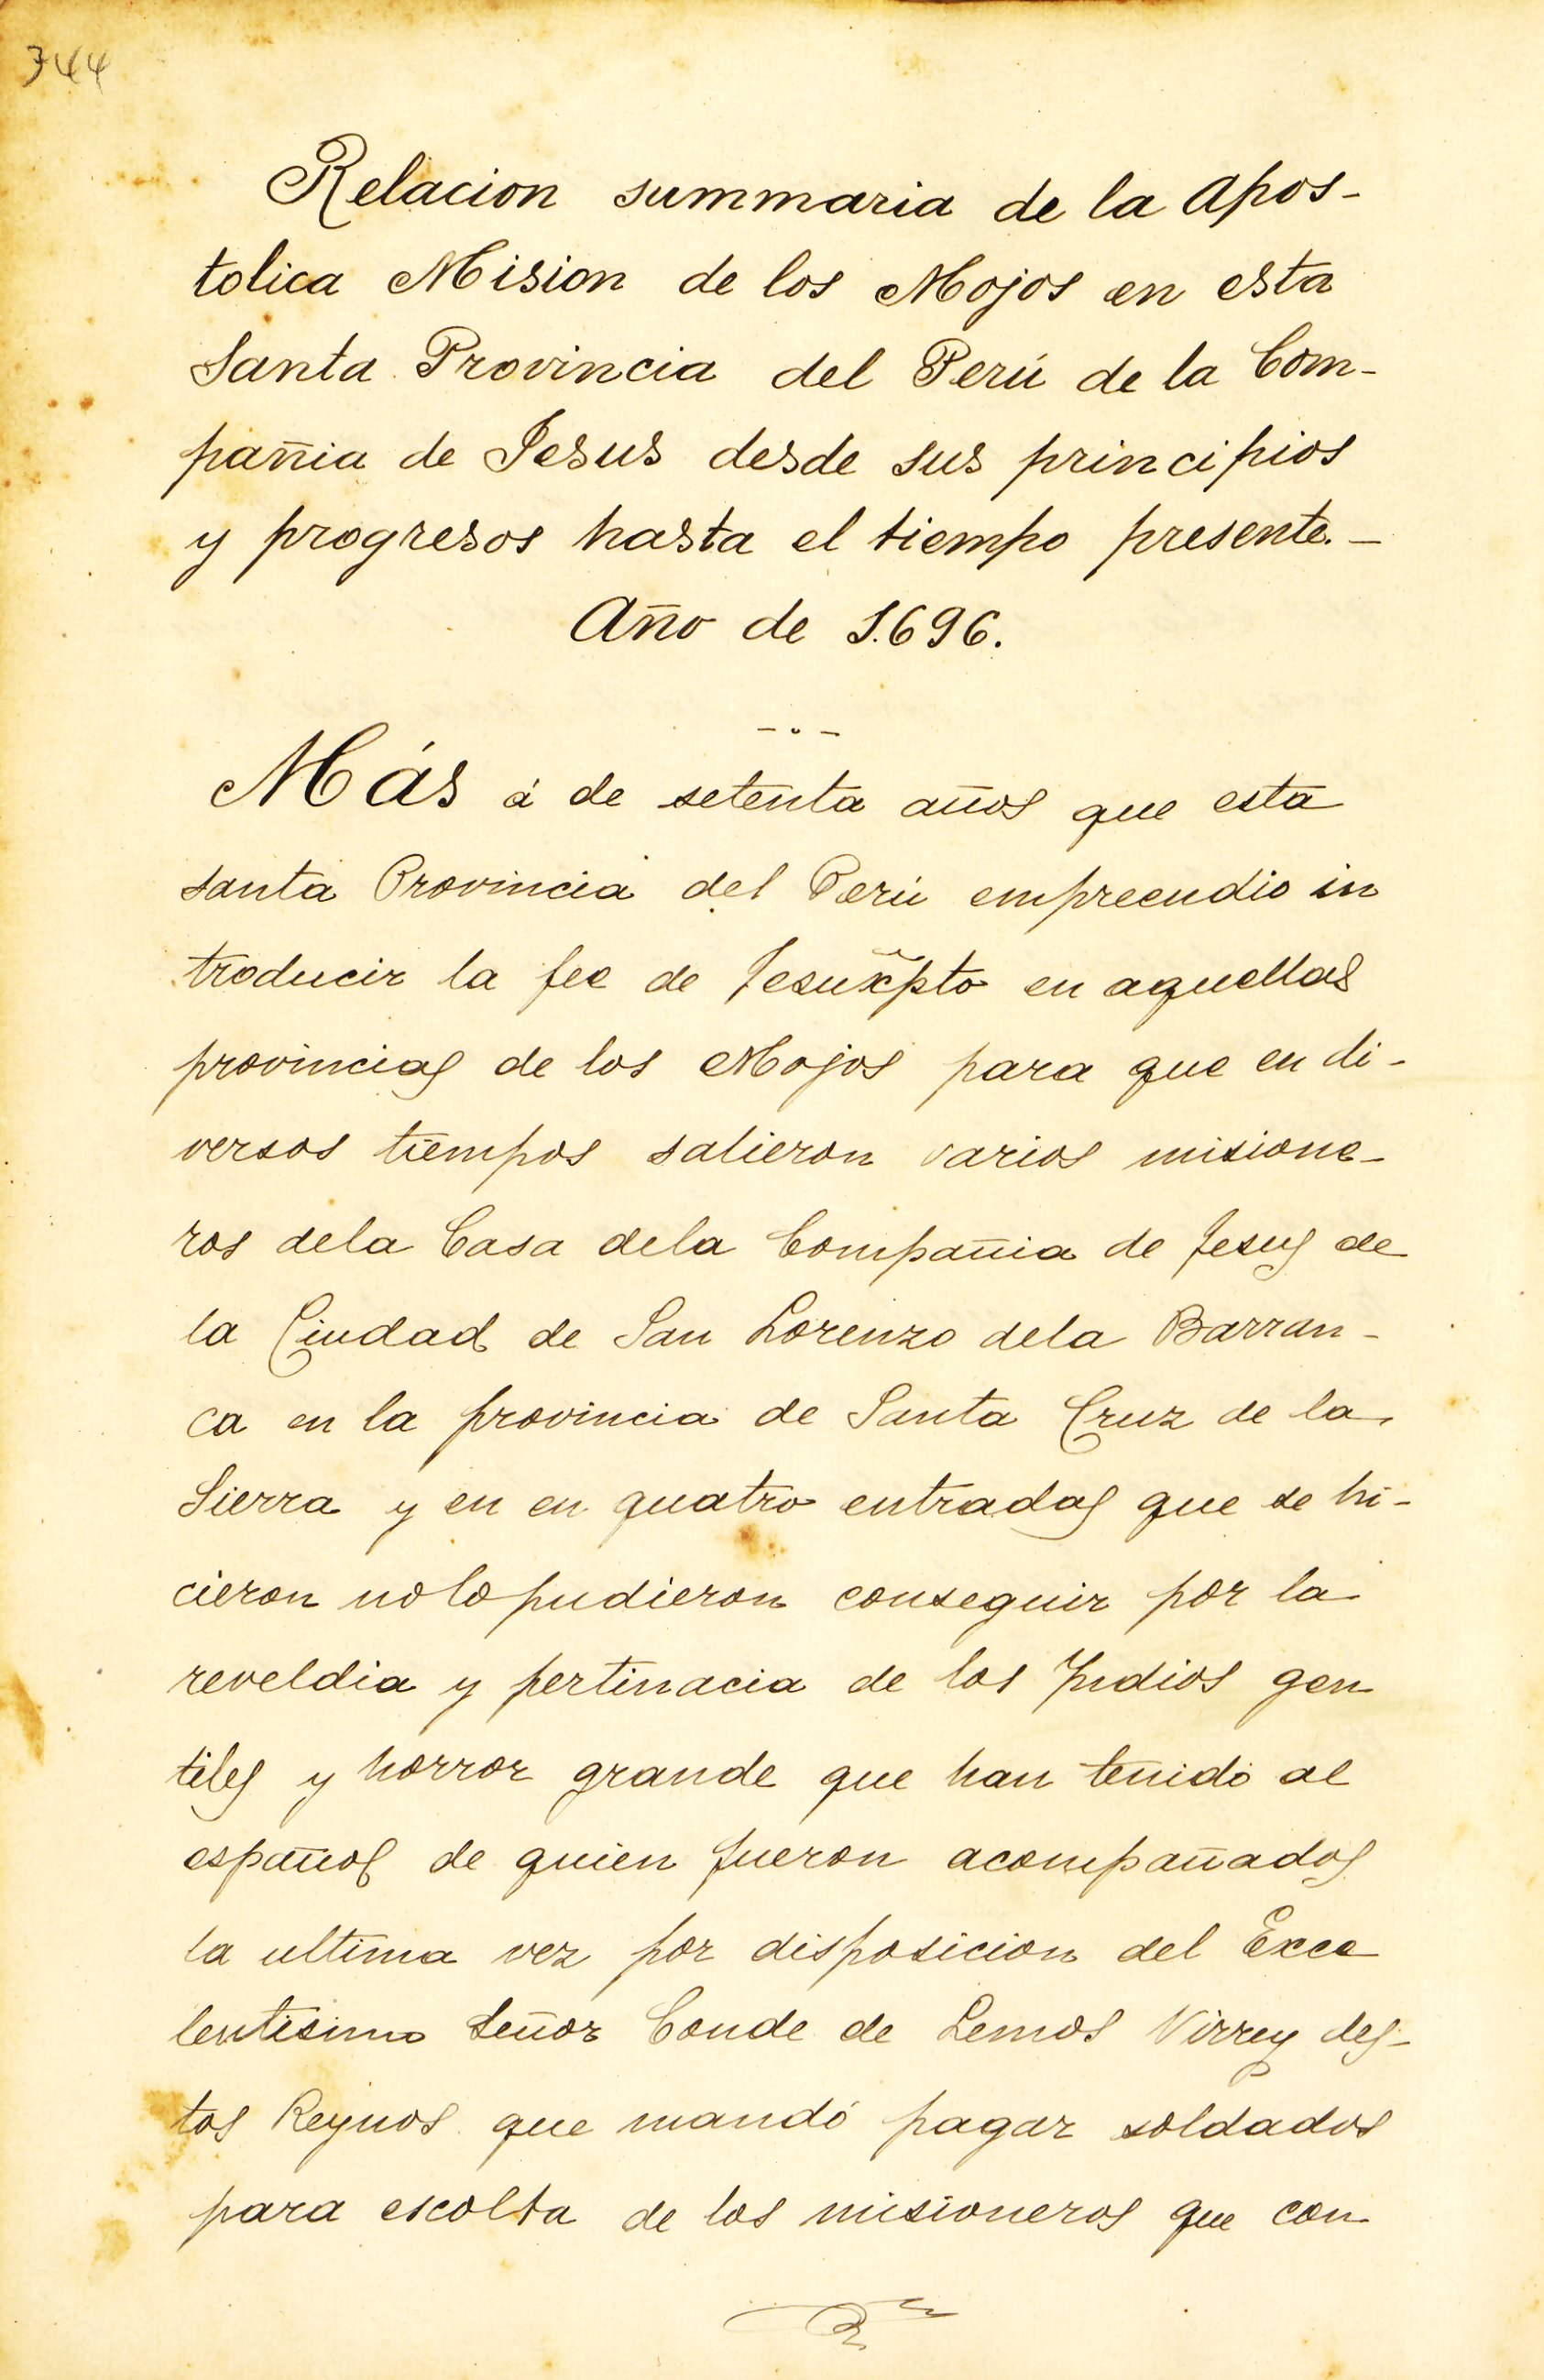 344
Relacion summaria de la Apos-
tolica Mision de los Mojos en esta
Santa Provincia del Perú de la Com-
pañia de Jesus desde sus principios
y progresos hasta el tiempo presente.-
Año de 1.696.
Más á de setenta años que esta
santa Provincia del Perú empreendio in
troducir la fee de Jesuxpto en aquellas
provincias de los Mojos para que en di-
versos tiempos salieron varios misione-
ros dela Casa dela Compañia de Jesus de
la Ciudad de San Lorenzo dela Barran-
ca en la provincia de Santa Cruz de la
Sierra y en en quatro entradas que se hi-
cieron no lo pudieron conseguir por la
reveldia y pertinacia de los Indios gen
tiles y horror grande que han tenido al
español de quien fueron acompañados
la ultima vez por disposicion del Exce
lentisimo Señor Conde de Lemos Virrey des-
tos Reynos que mandó pagar soldados
para escolta de los misioneros que con